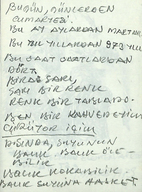 BUGÜN, GÜNLERDEN
CUMARTESİ.
BU AY AYLARDAN MART
BU YIL YILLARDAN 973
BU SAAT SAATLARDAN
DÖRT.
BİRAZ ŞARKI,
SARI BİR RENK
RENK BİR TABLODA.
BEN BİR KAHVEDEYİM
ÇÜRÜTÜR İÇİMİ
DIŞINDA, SUYUNUN
BALIK, BALIK ÖLE-
BİLİR.
BALIK KOKABİLİR.
BALIK SUYUNA HASRET.